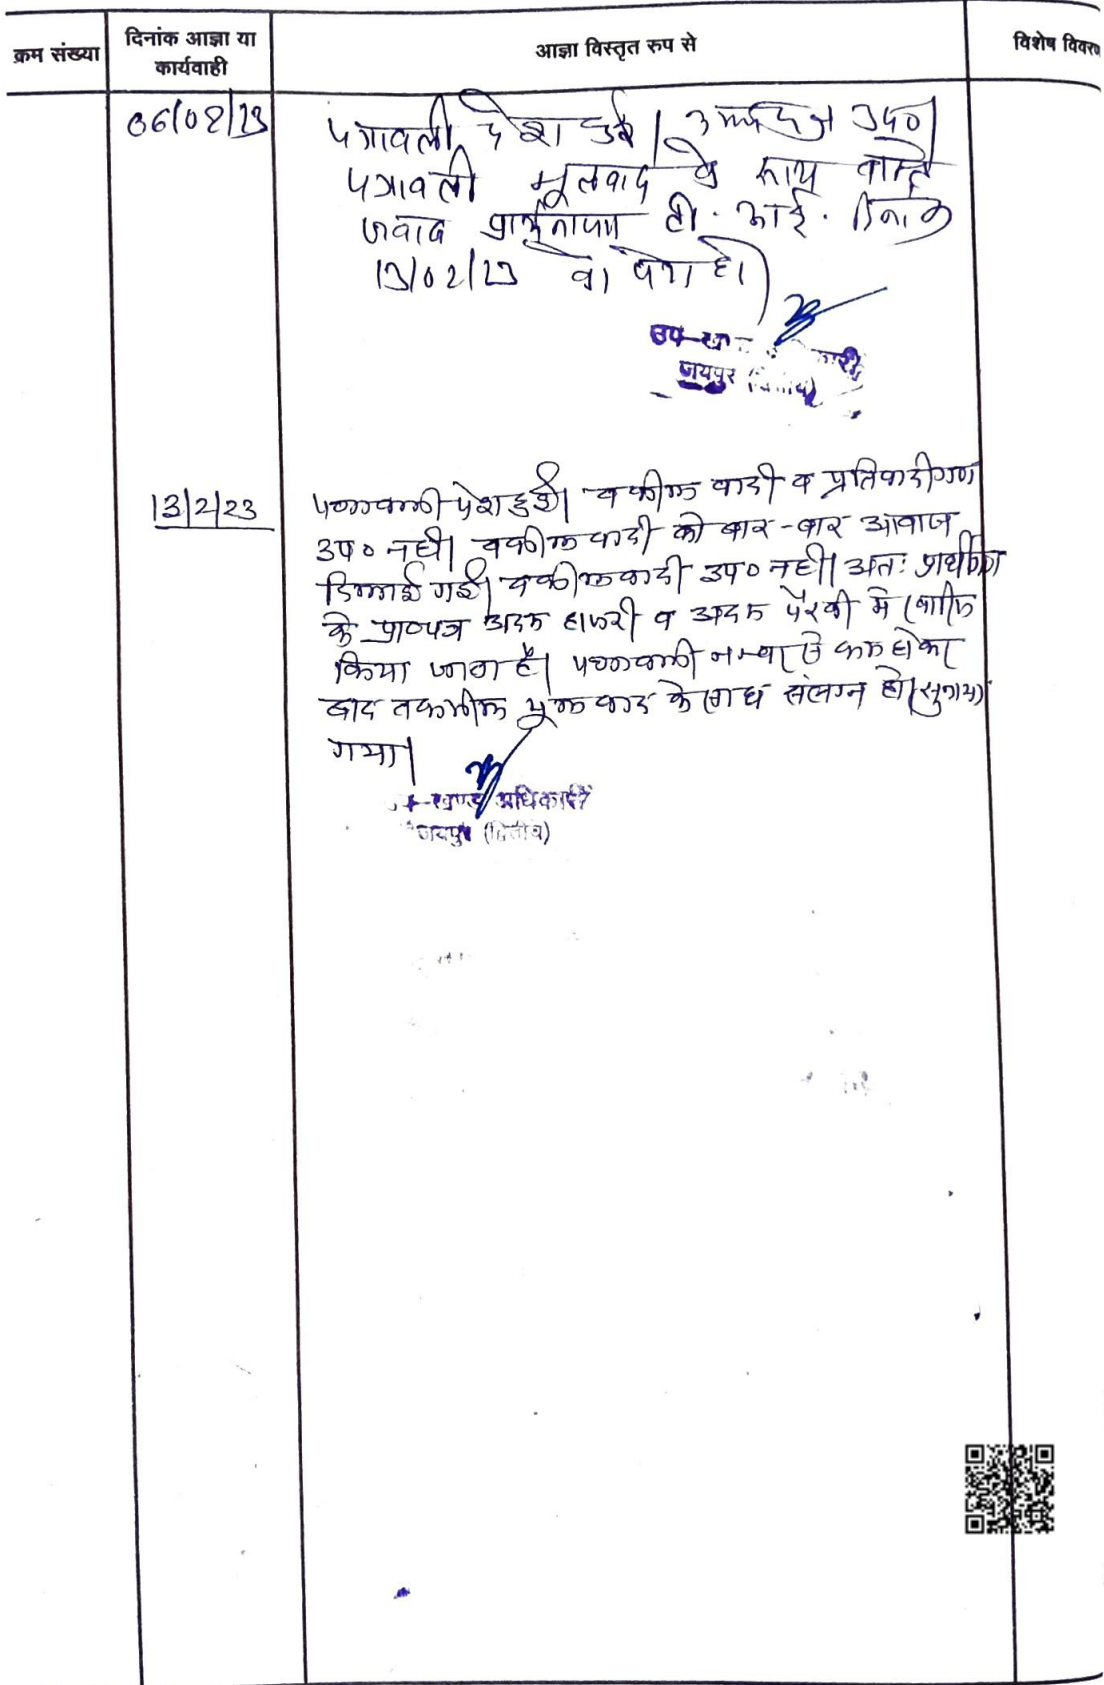 क्रम संख्या
दिनांक आज्ञा या
कार्यवाही
आज्ञा विस्तृत रुप से
विशेष विवरण
06/02/23
पत्रावली पेश हुई। उभयपक्ष उप०
पत्रावली मूलवाद के साथ वास्ते
जवाब प्रार्थनापत्र टी. आई. दिनांक
13/02/23 को पेश हो।
उप-ख
जयपुर
13/2/23
पत्रावली पेश हुई। वकील वादी व प्रतिवादीगण
उप० नहीं। वकील वादी को बार-बार आवाज
दिलाई गई। वकील वादी उप० नहीं। अतः प्रार्थीगण
के प्रा०पत्र अदम हाजरी व अदम पैरवी में खारिज
किया जाता है। पत्रावली नम्बर से कम होकर
बाद तकमील मूल वाद के साथ संलग्न हो। सुनाया
गया।
-खण्ड अधिकारी
जयपुर (द्वितीय)